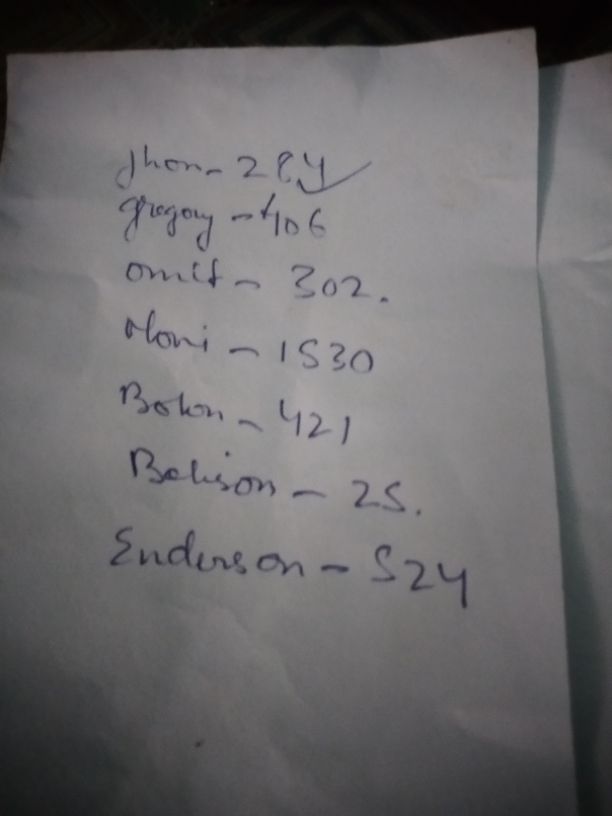 Jhon - 284
gregory - 406
omit - 302.
Moni - 1530
Bokon - 421
Bekison - 25.
Enderson - 524